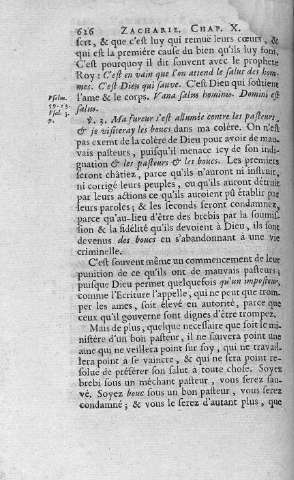 626 ZACHARIE, CHAP. X.
sert, & que c'est luy qui remuë leurs cœurs, &
qui est la premiére cause du bien qu'ils luy font.
C'est pourquoy il dit souvent avec le prophete
Roy: C'est en vain que l'on attend le salut des hom-
mes. C'est Dieu qui sauve. C'est Dieu qui soûtient
l'ame & le corps. Vana salus hominis. Domini est
salus.
Psalm.
59. 13.
Psal. 3.
9.
℣. 3. Ma fureur s'est allumée contre les pasteurs,
& je visiteray les boucs dans ma colére. On n'est
pas exemt de la colére de Dieu pour avoir de mau-
vais pasteurs, puisqu'il menace icy de son indi-
gnation & les pasteurs & les boucs. Les premiers
seront châtiez, parce qu'ils n'auront ni instruit,
ni corrigé leurs peuples, ou qu'ils auront détruit
par leurs actions ce qu'ils auroient pû établir par
leurs paroles; & les seconds seront condamnez,
parce qu'au-lieu d'être des brebis par la soumis-
sion & la fidélité qu'ils devoient à Dieu, ils sont
devenus des boucs en s'abandonnant à une vie
criminelle.
C'est souvent même un commencement de leur
punition de ce qu'ils ont de mauvais pasteurs;
puisque Dieu permet quelquefois qu'un imposteur,
comme l'Ecriture l'appelle, qui ne peut que trom-
per les ames, soit élevé en autorité, parce que
ceux qu'il gouverne sont dignes d'être trompez.
Mais de plus, quelque necessaire que soit le mi-
nistére d'un bon pasteur, il ne sauvera point une
ame qui ne veillera point sur soy, qui ne travail-
lera point à se vaincre, & qui ne sera point reso-
luë de préférer son salut à toute chose. Soyez
brebi sous un méchant pasteur, vous serez sau-
vé. Soyez bouc sous un bon pasteur, vous serez
condamné; & vous le serez d'autant plus, que